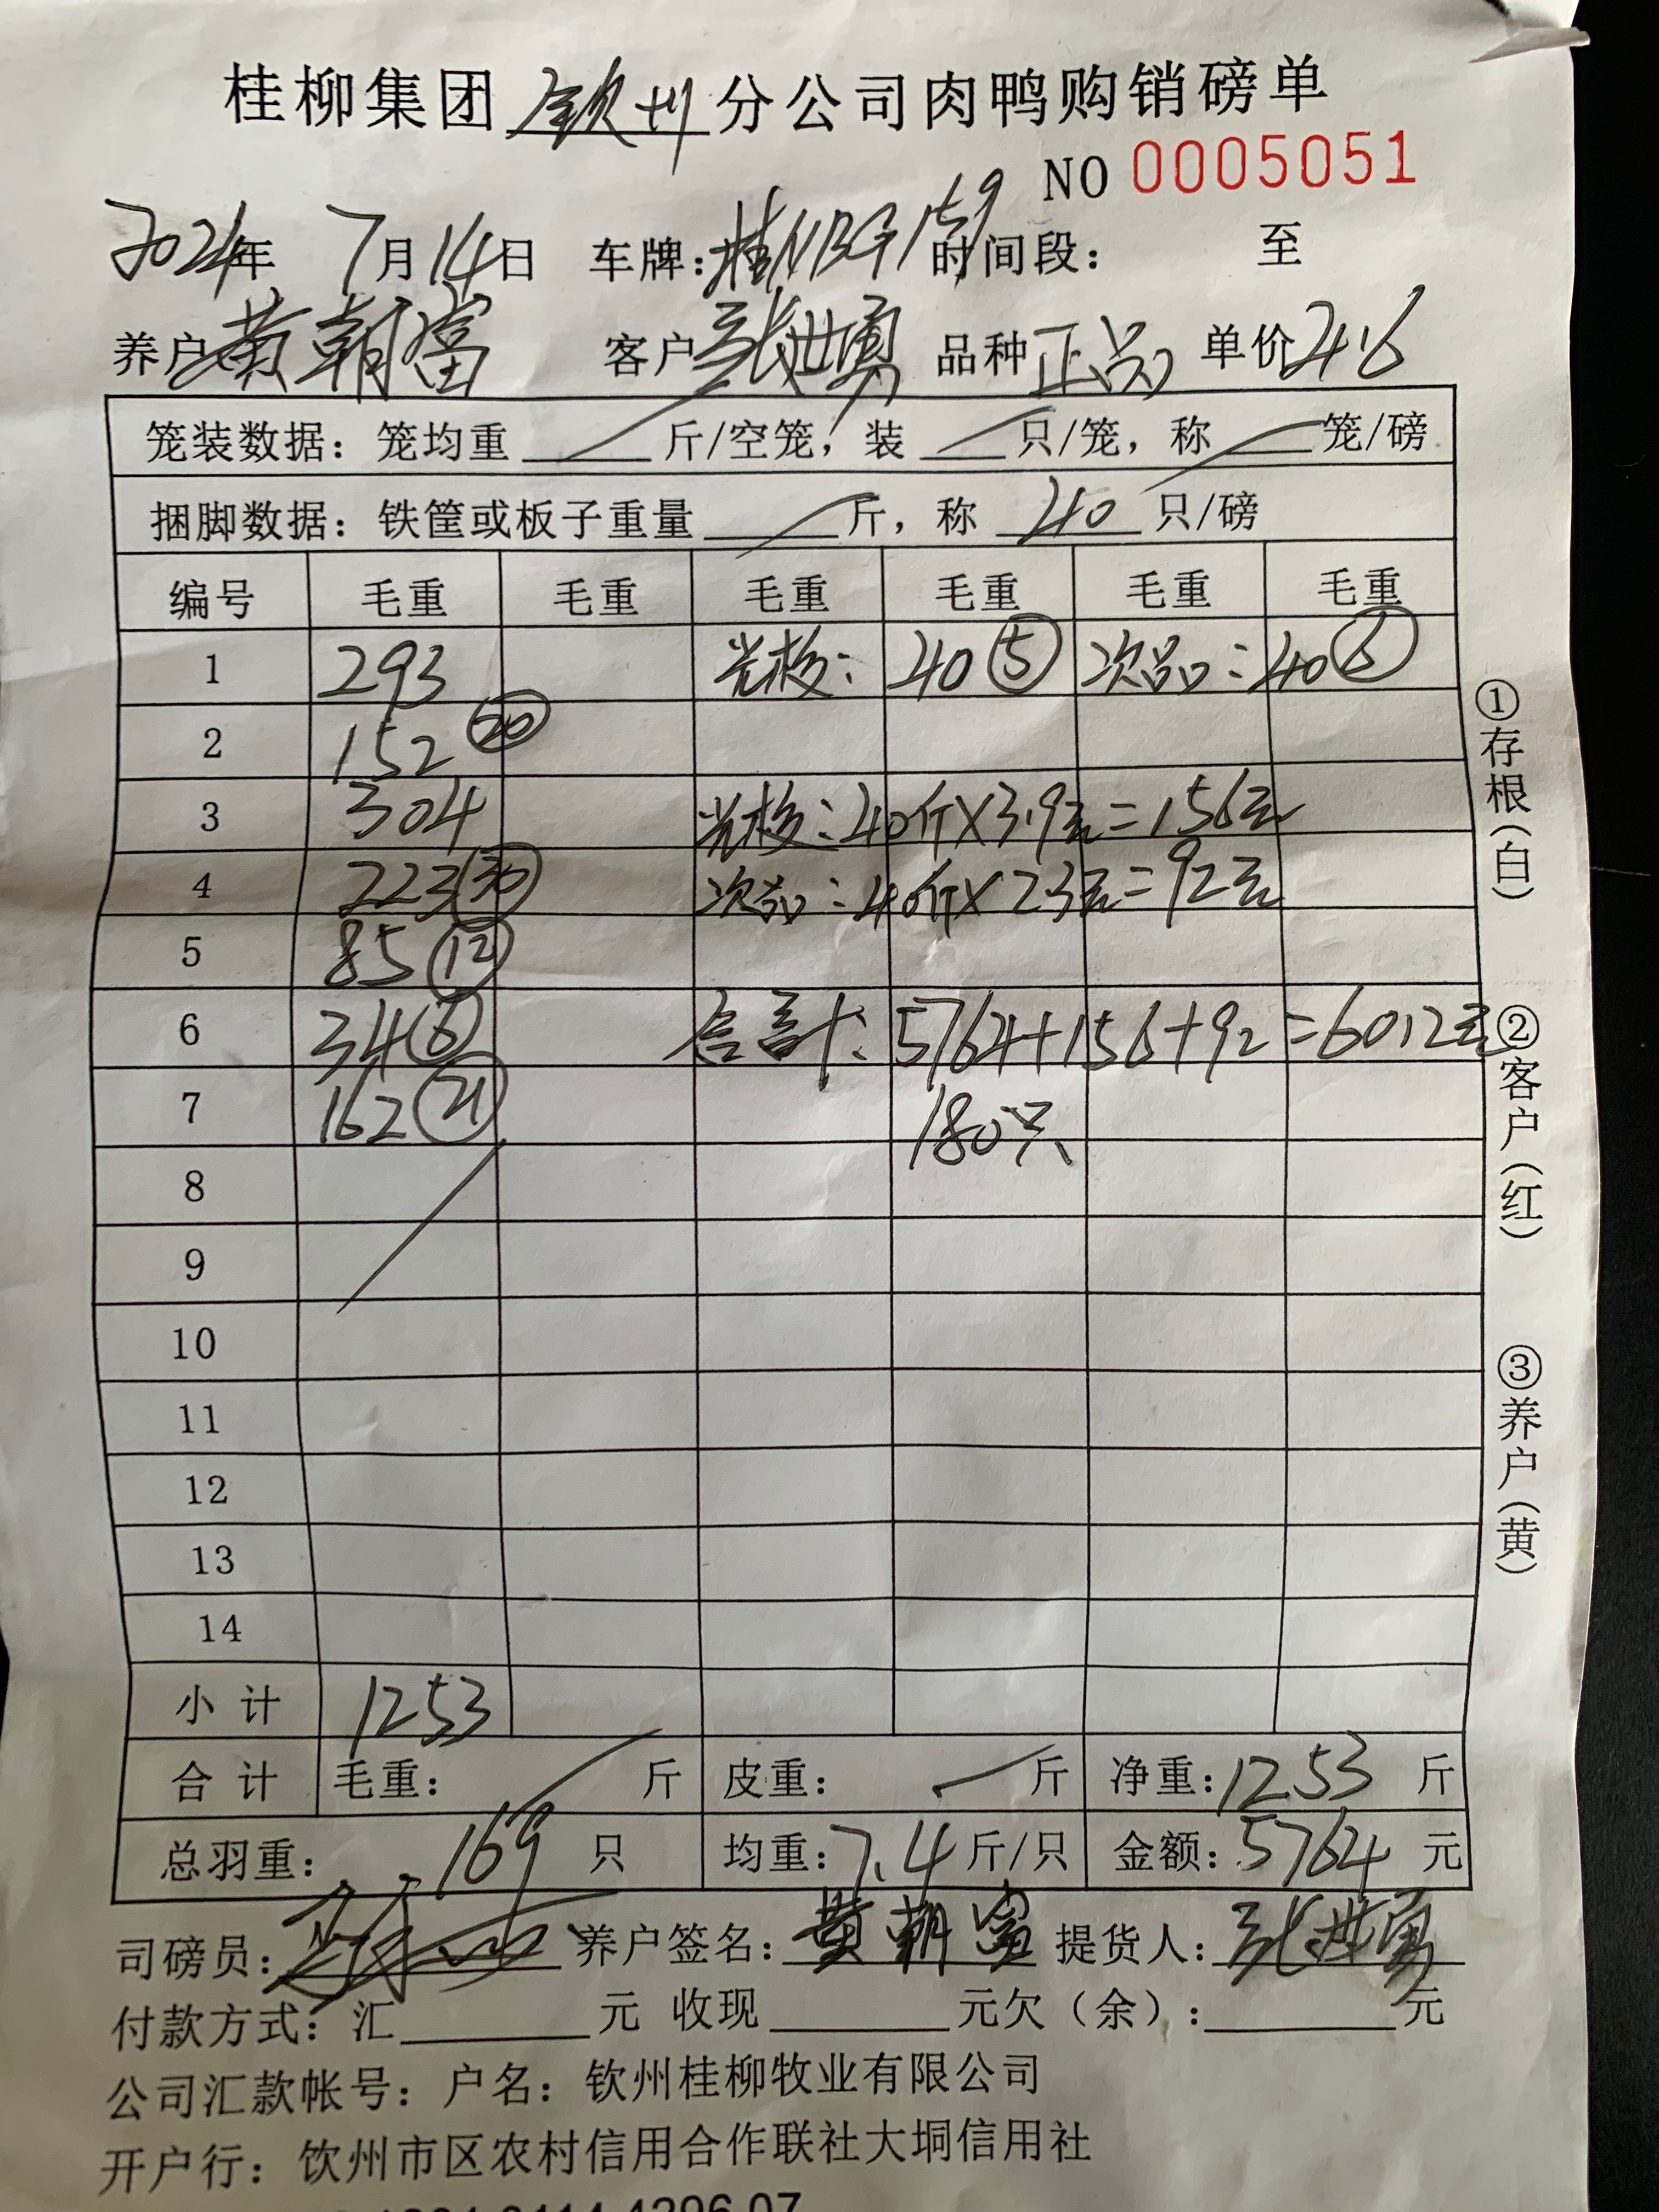 桂柳集团 钦州 分公司肉鸭购销磅单
NO 0005051
2024年 7月14日 车牌:桂NBG159 时间段: 至
养户 黄朝富 客户 张世勇 品种 正品 单价 4.6
笼装数据:笼均重 斤/空笼,装 只/笼,称 笼/磅
捆脚数据:铁筐或板子重量 斤,称 40 只/磅
编号 毛重 毛重 毛重 毛重 毛重 毛重
1 293 光梭: 40 ⑤ 次品: 40 ⑥
2 152 ⑳
3 304 光梭:40斤×3.9元=156元
4 223 ㉚ 次品:40斤×2.3元=92元
5 85 ⑫
6 34 ⑥ 合計: 5764+156+92=6012元
7 162 ㉑ 180只
8
9
10
11
12
13
14
小计 1253
合计 毛重: 斤 皮重: 斤 净重:1253 斤
总羽重: 169 只 均重:7.4 斤/只 金额:5764 元
司磅员: 养户签名:黄朝富 提货人:张世勇
付款方式:汇 元 收现 元欠(余): 元
公司汇款帐号:户名:钦州桂柳牧业有限公司
开户行:钦州市区农村信用合作联社大垌信用社
①存根(白)
②客户(红)
③养户(黄)